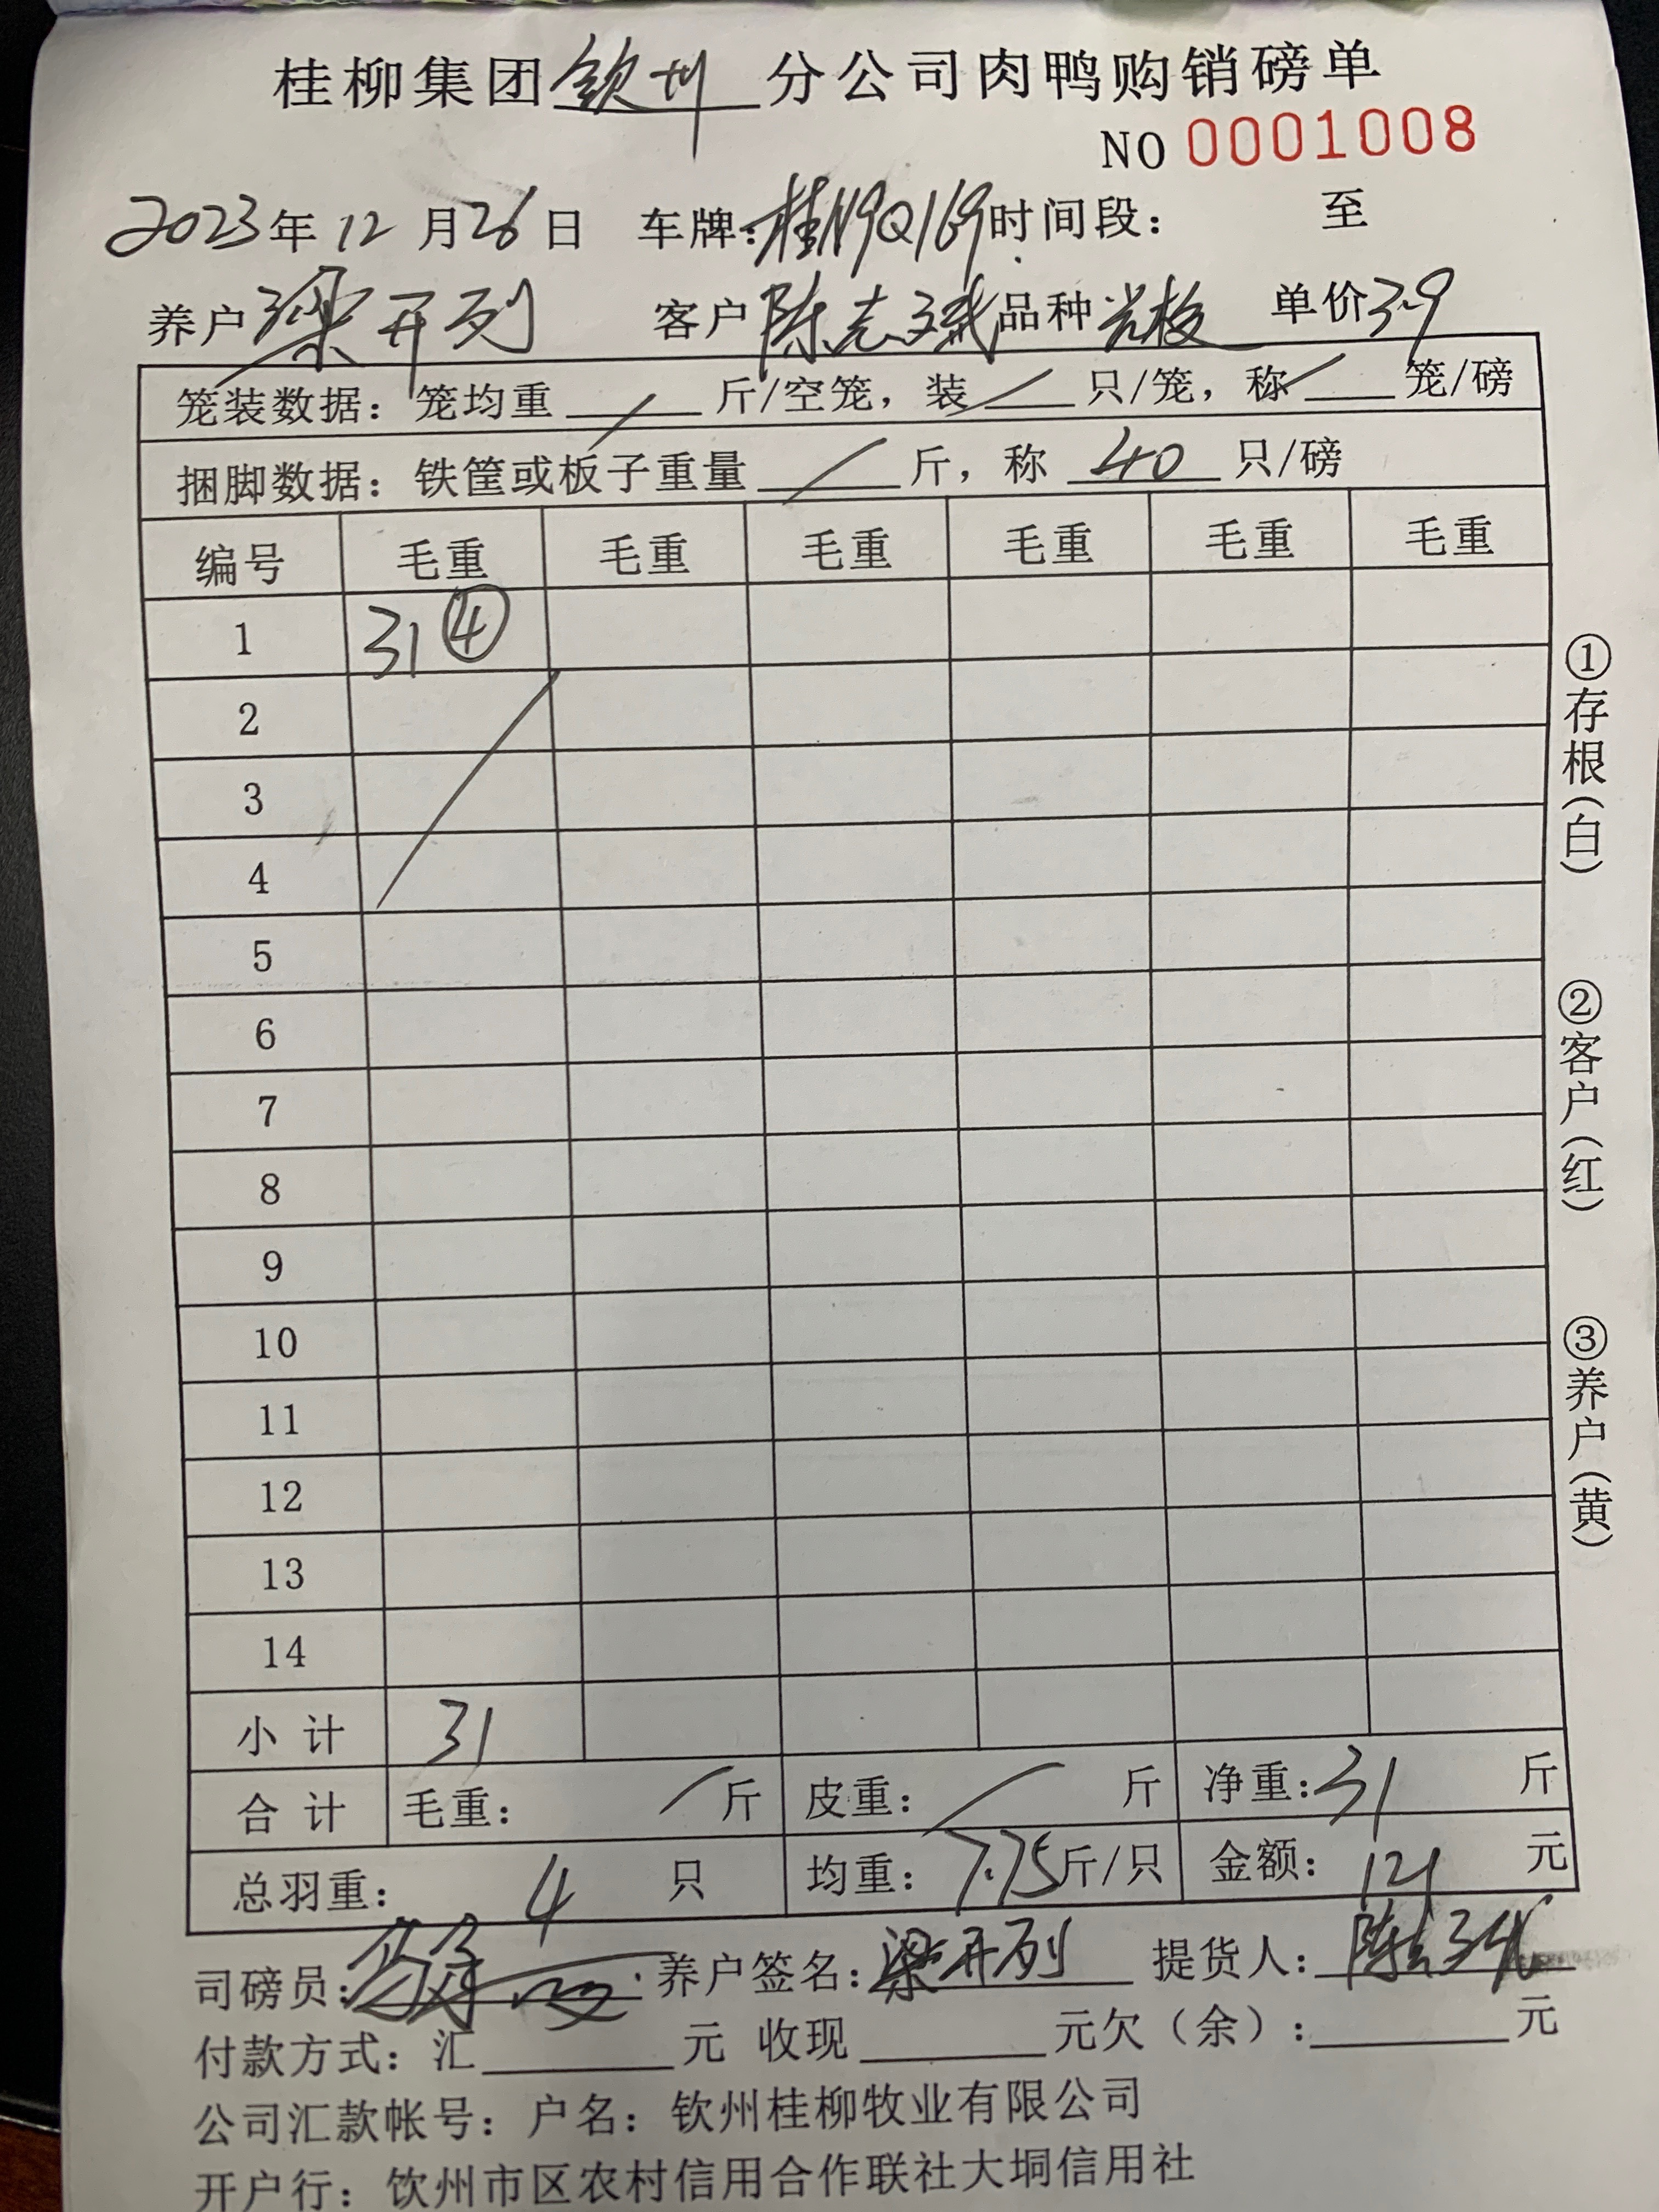 桂柳集团钦州分公司肉鸭购销磅单
NO 0001008
2023年12月26日 车牌:桂N9Q169时间段: 至
养户梁开列 客户陈志斌品种 单价3.9
笼装数据: 笼均重 / 斤/空笼, 装 / 只/笼, 称 / 笼/磅
捆脚数据: 铁筐或板子重量 / 斤, 称 40 只/磅
编号 毛重 毛重 毛重 毛重 毛重 毛重
1 31 ④
2
3
4
5
6
7
8
9
10
11
12
13
14
小计 31
合计 毛重: / 斤 皮重: / 斤 净重:31 斤
总羽重: 4 只 均重: 7.75斤/只 金额: 121 元
司磅员: 养户签名:梁开列 提货人:陈志斌
付款方式: 汇 元 收现 元欠(余): 元
公司汇款帐号: 户名: 钦州桂柳牧业有限公司
开户行: 钦州市区农村信用合作联社大垌信用社
①存根(白)
②客户(红)
③养户(黄)